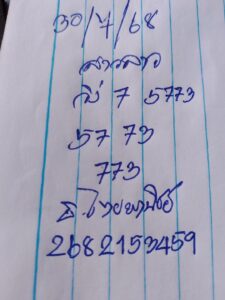 30/7/68
สาวลาว
ส่ 7 5773
57 73
773
ธ.ไทยพานิชย์
2682153459